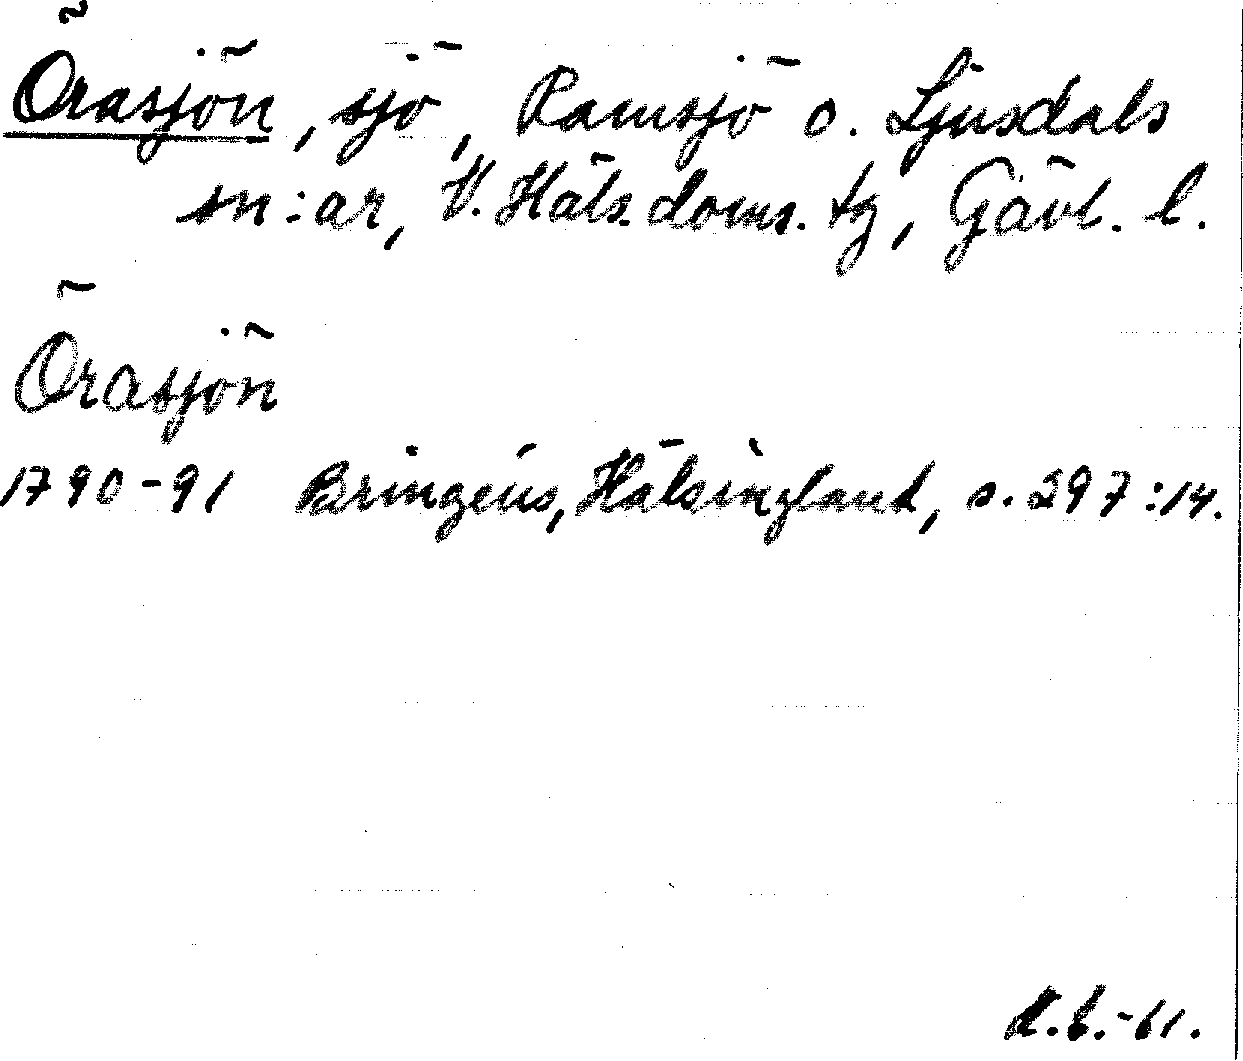 Örasjön, sjö, Ramsjö o. Ljusdals
sn:ar, V. Häls. doms. tg, Gävl. l.
Örasjön
1790-91 Bringéus, Hälsingland, s. 297:14.
-61.